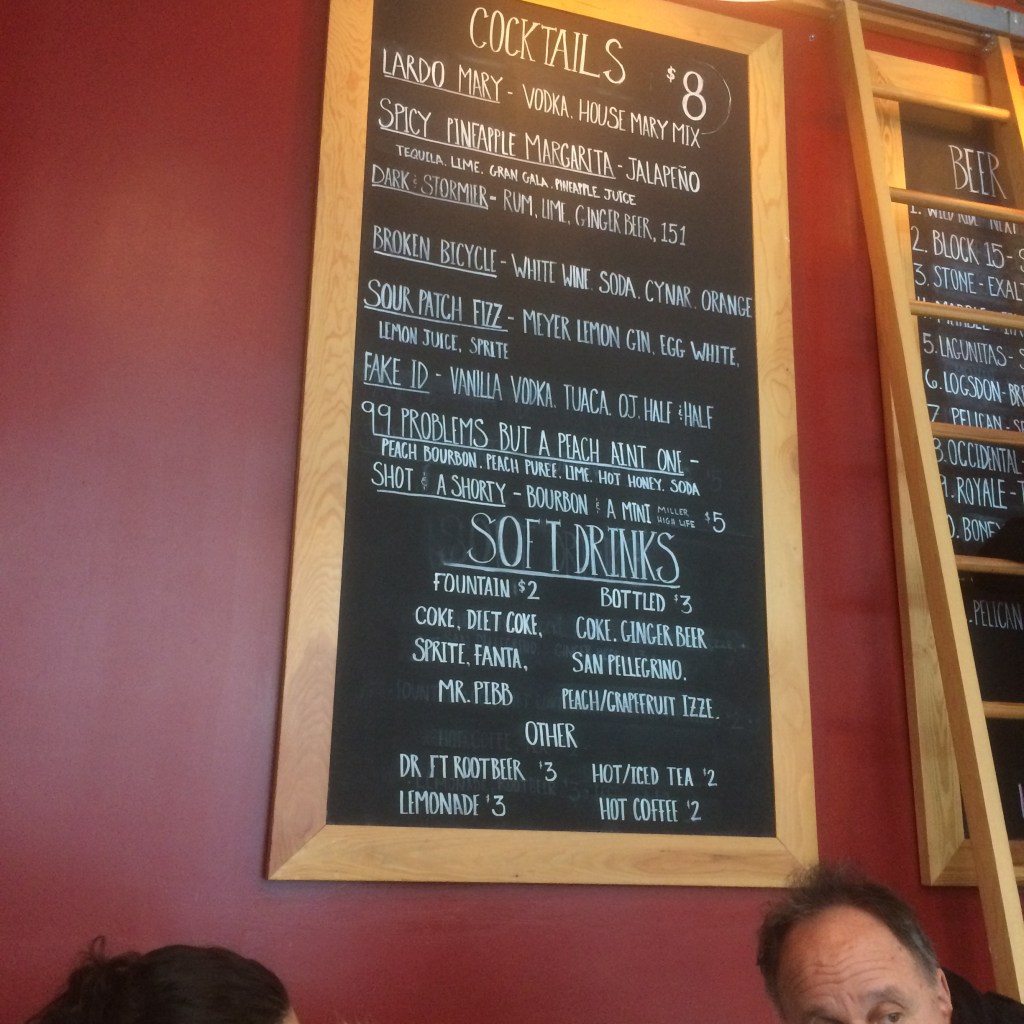 COCKTAILS $8
LARDO MARY - VODKA, HOUSE MARY MIX
SPICY PINEAPPLE MARGARITA - JALAPEÑO
TEQUILA, LIME, GRAN GALA, PINEAPPLE JUICE
DARK & STORMIER - RUM, LIME, GINGER BEER, 151
BROKEN BICYCLE - WHITE WINE, SODA, CYNAR, ORANGE
SOUR PATCH FIZZ - MEYER LEMON GIN, EGG WHITE,
LEMON JUICE, SPRITE
FAKE ID - VANILLA VODKA, TUACA, OJ, HALF & HALF
99 PROBLEMS BUT A PEACH AINT ONE -
PEACH BOURBON, PEACH PUREE, LIME, HOT HONEY, SODA
SHOT & A SHORTY - BOURBON & A MINI MILLER HIGH LIFE $5
SOFT DRINKS
FOUNTAIN $2
COKE, DIET COKE,
SPRITE, FANTA,
MR. PIBB
BOTTLED $3
COKE, GINGER BEER
SAN PELLEGRINO,
PEACH/GRAPEFRUIT IZZE,
OTHER
DR FT ROOTBEER $3
LEMONADE $3
HOT/ICED TEA $2
HOT COFFEE $2
BEER
2. BLOCK 15 -
3. STONE - EXALT
5. LAGUNITAS -
6. LOGSDON -
7. PELICAN -
8. OCCIDENTAL -
9. ROYALE -
PELICAN